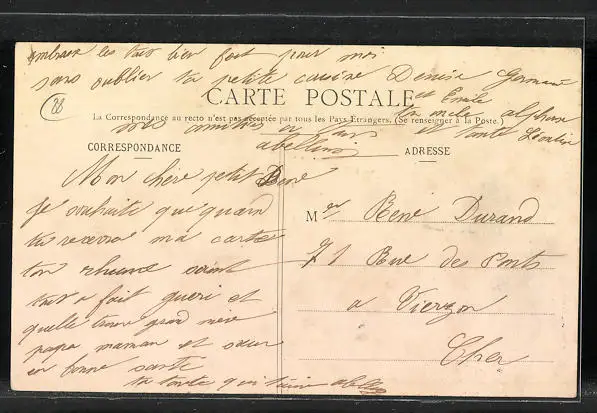 embrasse les tout bien fort pour moi
sans oublier ta petite cousine Denise Germaine
et Emile
CARTE POSTALE
ta mele alphonse
La Correspondance au recto n'est pas acceptée par tous les Pays Étrangers. (Se renseigner à la Poste.)
mes amitiés a tous et tante Léontine
abellini
CORRESPONDANCE
ADRESSE
28
Mon chère petit René
Je souhaite que quand
tu recevra ma carte
ton rhume serait
tout a fait gueri et
quelle trouve grand mère
papa maman et sœur
en bonne santé
ta tante qui t'aime
Mer René Durand
71 Rue des Ponts
a Vierzon
Cher